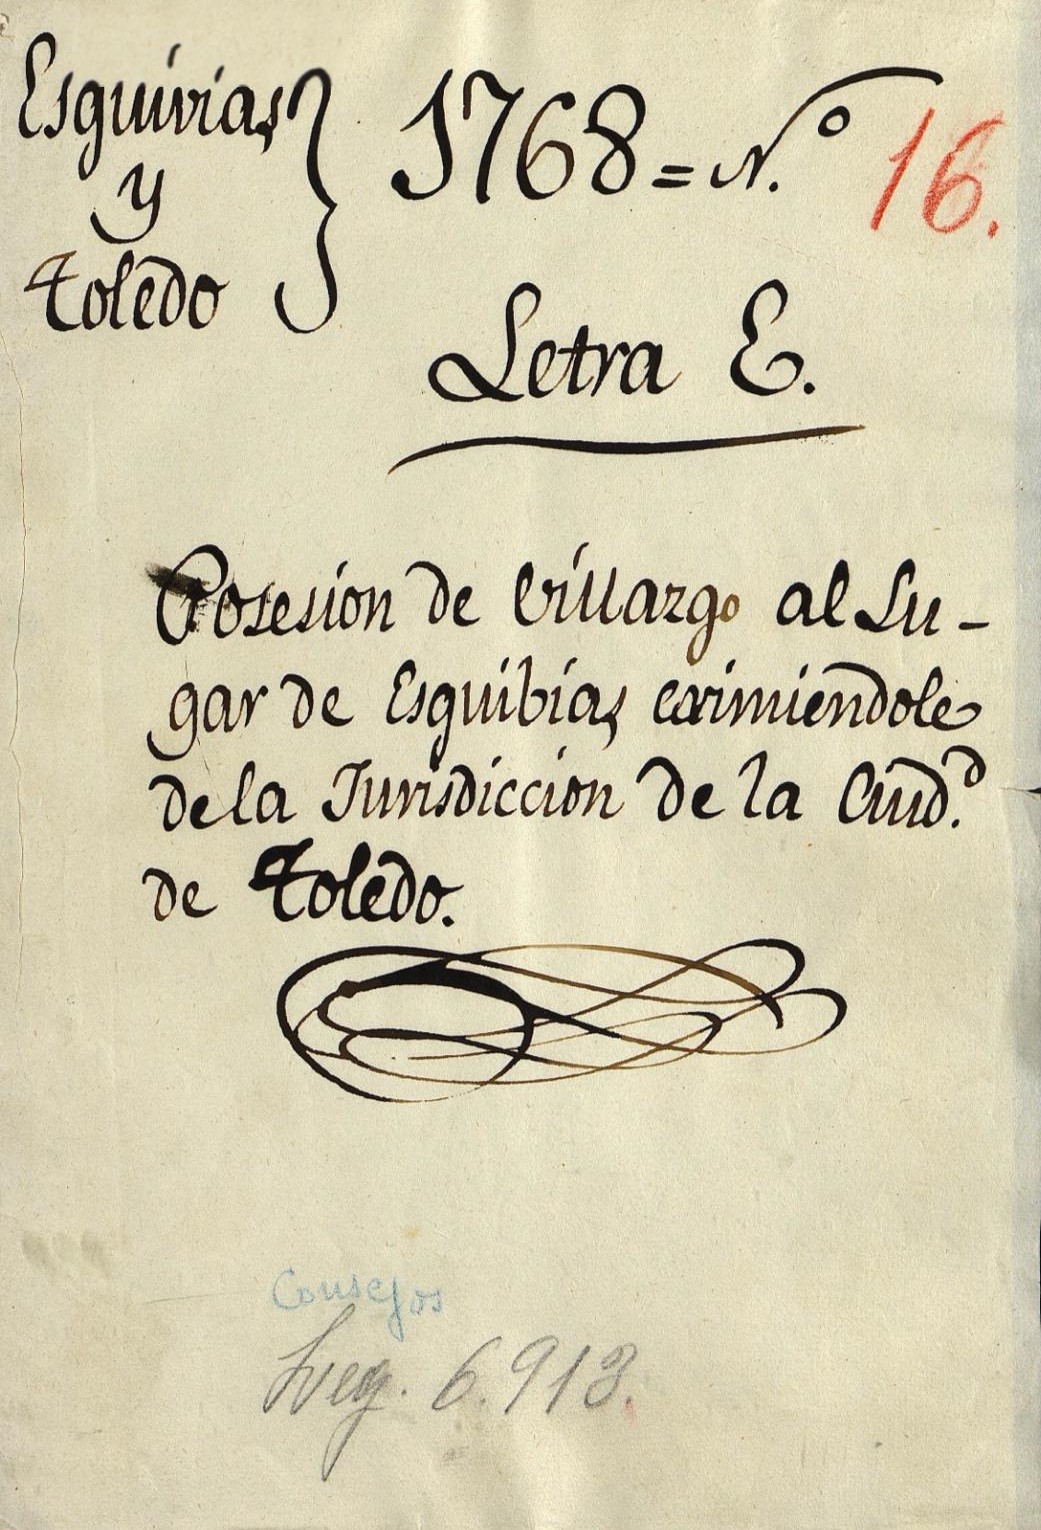 Esquivias
y
Toledo
1768 = N.º 16.
Letra E.
Posesion de Villazgo al Lu-
gar de Esquibias eximiendole
de la Jurisdiccion de la Ciud.d
de Toledo.
Consejos
Leg. 6.913.